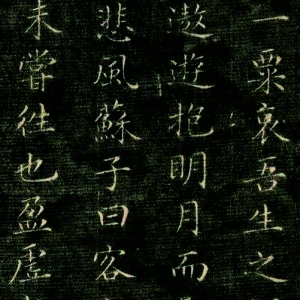 一粟哀吾生之
遨遊抱明月而
悲風蘇子曰客
未嘗往也盈虗